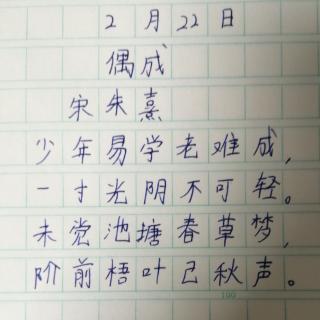 2月22日
偶成
宋朱熹
少年易学老难成,
一寸光阴不可轻。
未觉池塘春草梦,
阶前梧叶已秋声。
100